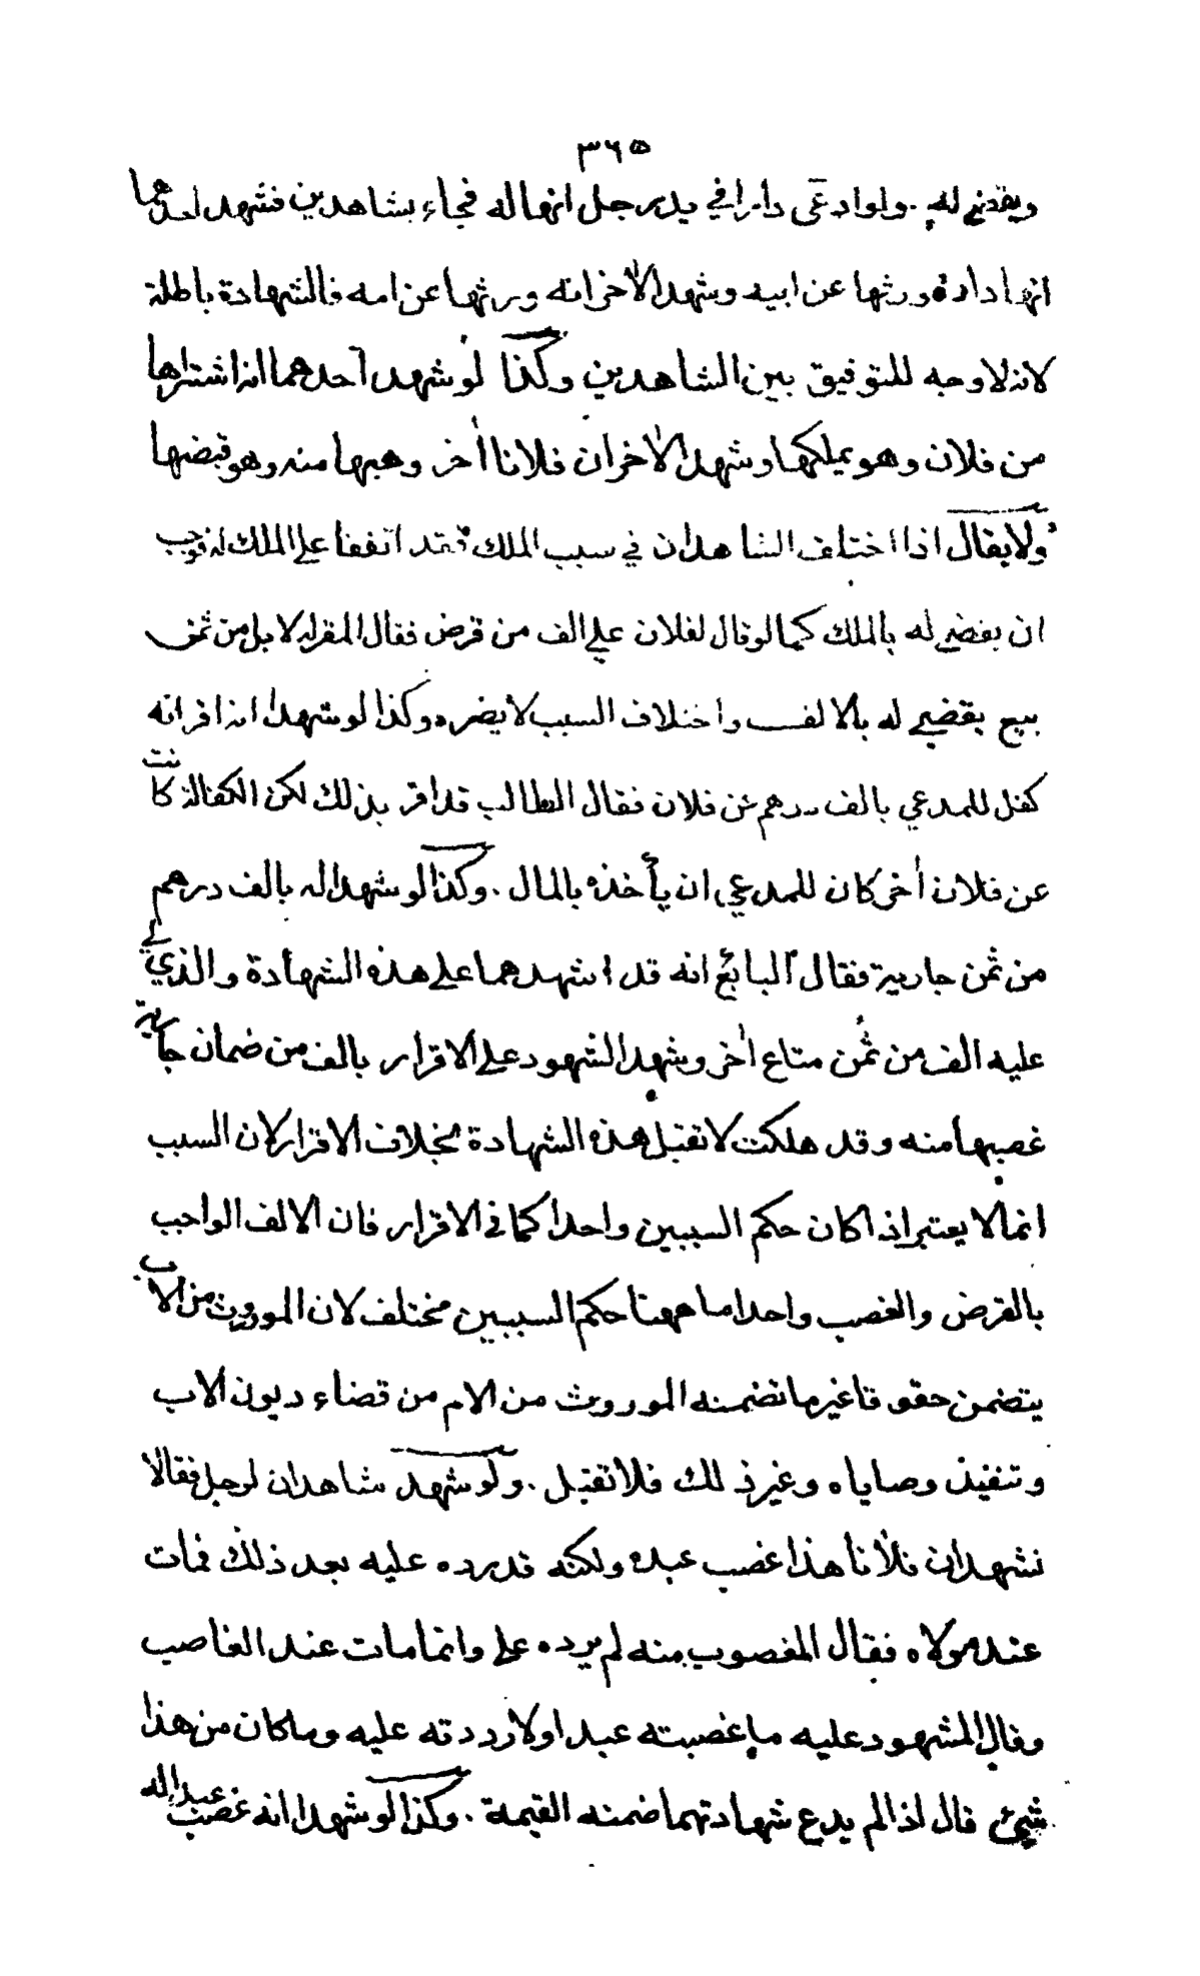 ٣٦٥
ويقضي له . ولو ادعى دارا في يد رجل انها له فجاء بشاهدين فشهد احدهما
انها داره ورثها عن ابيه وشهد الاخر انه ورثها عن امه فالشهادة باطلة
لانه لا وجه للتوفيق بين الشاهدين وكذا لو شهد احدهما انه اشتراها
من فلان وهو يملكها وشهد الاخر ان فلانا اخر وهبها منه وهو قبضها
ولا يقال اذا اختلف الشاهدان في سبب الملك فقد اتفقا على الملك له فوجب
ان يقضي له بالملك كما لو قال لفلان علي الف من قرض فقال المقر له لا بل من ثمن
بيع يقضي له بالالف واختلاف السبب لا يضره وكذا لو شهدا انه اقر انه
كفل للمدعي بالف درهم عن فلان فقال الطالب قد اقر بذلك لكن الكفالة كانت
عن فلان اخر كان للمدعي ان يأخذه بالمال . وكذا لو شهدا له بالف درهم
من ثمن جارية فقال البائع انه قد اشهدهما على هذه الشهادة والذي لي
عليه الف من ثمن متاع اخر وشهد الشهود على الاقرار بالف من ضمان جارية
غصبها منه وقد هلكت لا تقبل هذه الشهادة بخلاف الاقرار لان السبب
انما لا يعتبر اذا كان حكم السببين واحدا كما في الاقرار فان الالف الواجب
بالقرض والغصب واحد اما ههنا حكم السببين مختلف لان الموروث من الاب
يتضمن حقوقا غير ما تضمنه الموروث من الام من قضاء ديون الاب
وتنفيذ وصاياه وغير ذلك فلا تقبل . ولو شهد شاهدان لرجل فقالا
نشهد ان فلانا هذا غصب عبده ولكنه قد رده عليه بعد ذلك فمات
عند مولاه فقال المغصوب منه لم يرده علي وانما مات عند الغاصب
وقال المشهود عليه ما غصبته عبدا ولا رددته عليه وما كان من هذا
شيئ قال اذا لم يدع شهادتهما ضمنه القيمة . وكذا لو شهدا انه غصب عبدا له